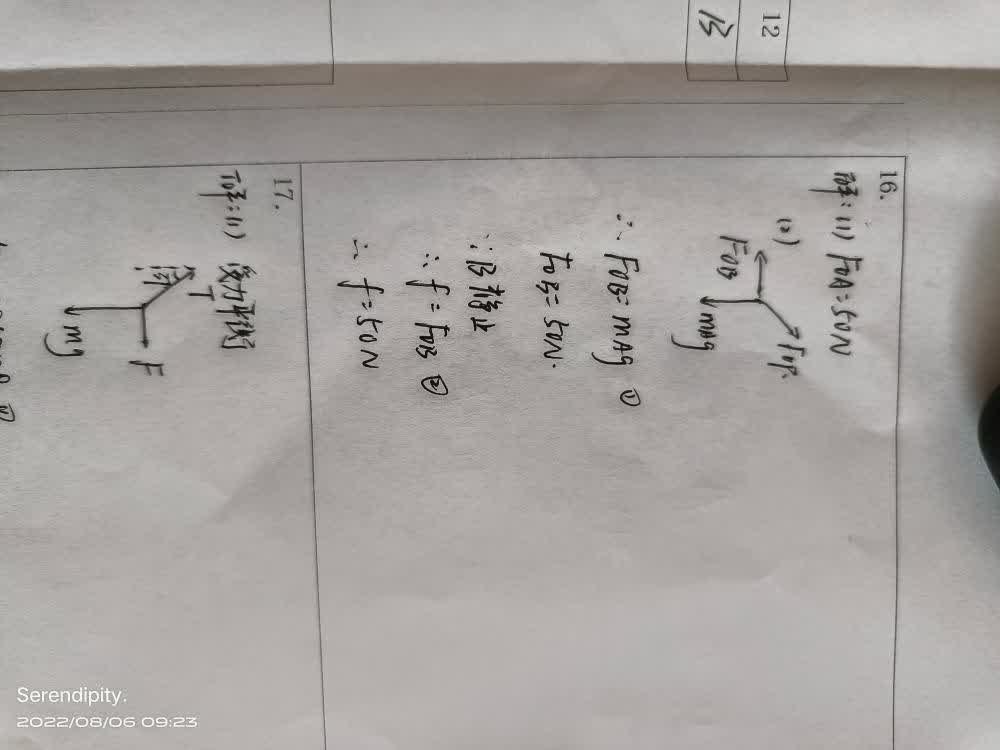 12
B
16.
解：(1) FOA=50N
(2)
FOB
mAg
∴ FOB=mAg ①
FOB=50N.
∵B静止
∴ f=FOB ②
∴ f=50N
17.
解：(1) 受力平衡
T
F
mg
Serendipity.
2022/08/06 09:23